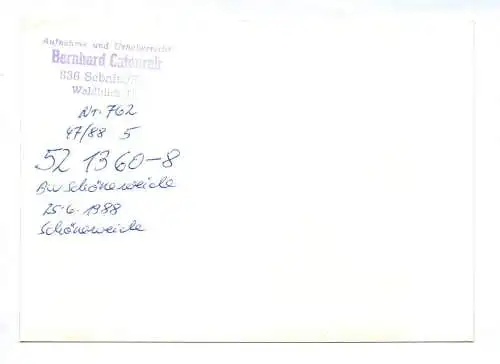 Aufnahme und Urheberrecht
Bernhard
836 Sebnitz
Waldblick
Nr. 762
47/88 5
52 1360-8
Bw Schöneweide
25.6.1988
Schöneweide